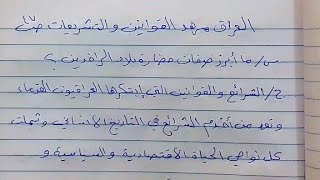 العراق مهد القوانين والتشريعات ص٤٧
س/ ما أبرز صفات حضارة بلاد الرافدين ؟
ج/ الشرائع والقوانين التي ابتكرها العراقيون القدماء
وتعد من أقدم الشرائع في التاريخ الانساني وشملت
كل نواحي الحياة الاقتصادية والسياسية و